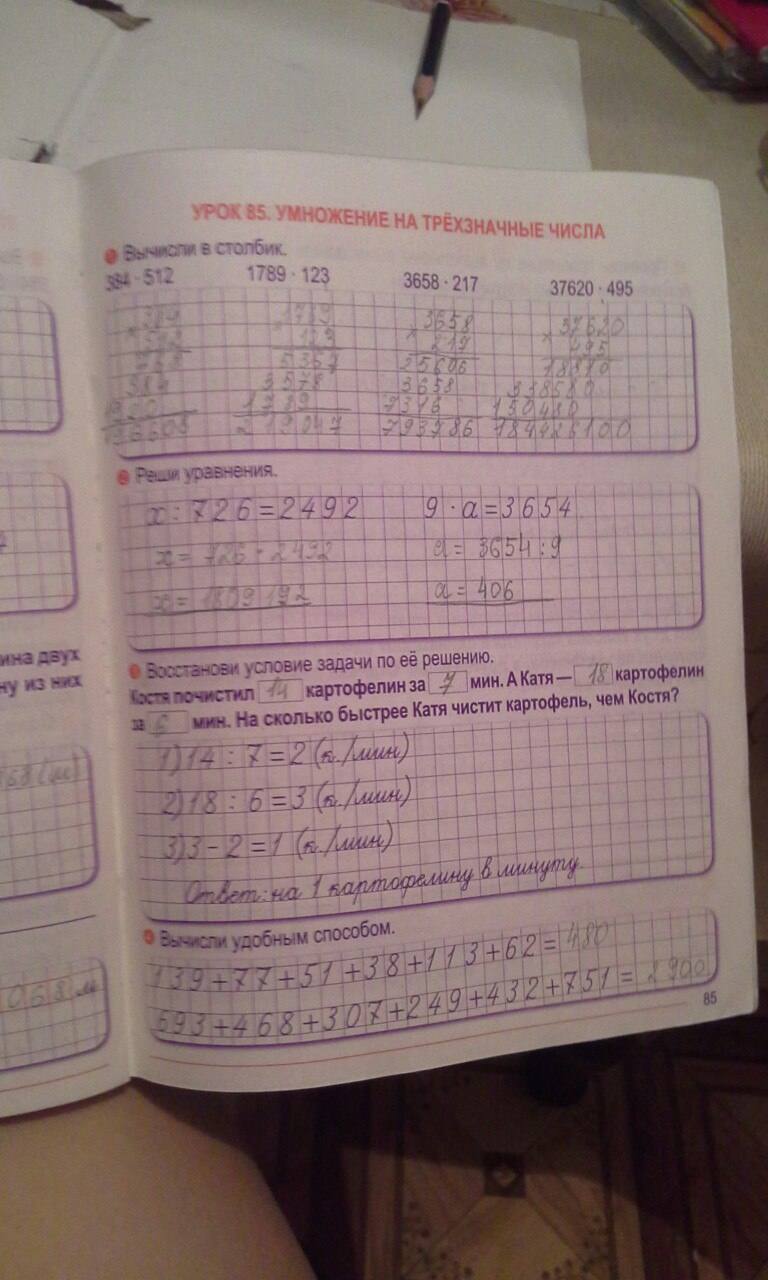 УРОК 85. УМНОЖЕНИЕ НА ТРЁХЗНАЧНЫЕ ЧИСЛА
Вычисли в столбик.
384 · 512 1789 · 123 3658 · 217 37620 · 495
1789 3658 37620
123 217 495
5367 25606
3578 3658 338580
1789 7316 150480
793786
Реши уравнения.
x : 726 = 2492 9 · a = 3654
x = 726 · 2492 a = 3654 : 9
x = 1809192 a = 406
Восстанови условие задачи по её решению.
ина двух
Костя почистил 14 картофелин за 7 мин. А Катя — 18 картофелин
ну из них
за 6 мин. На сколько быстрее Катя чистит картофель, чем Костя?
1) 14 : 7 = 2 (к./мин)
2) 18 : 6 = 3 (к./мин)
3) 3 - 2 = 1 (к./мин)
Ответ: на 1 картофелину в минуту.
Вычисли удобным способом.
139 + 77 + 51 + 38 + 113 + 62 = 480
693 + 468 + 307 + 249 + 432 + 751 = 2900
85